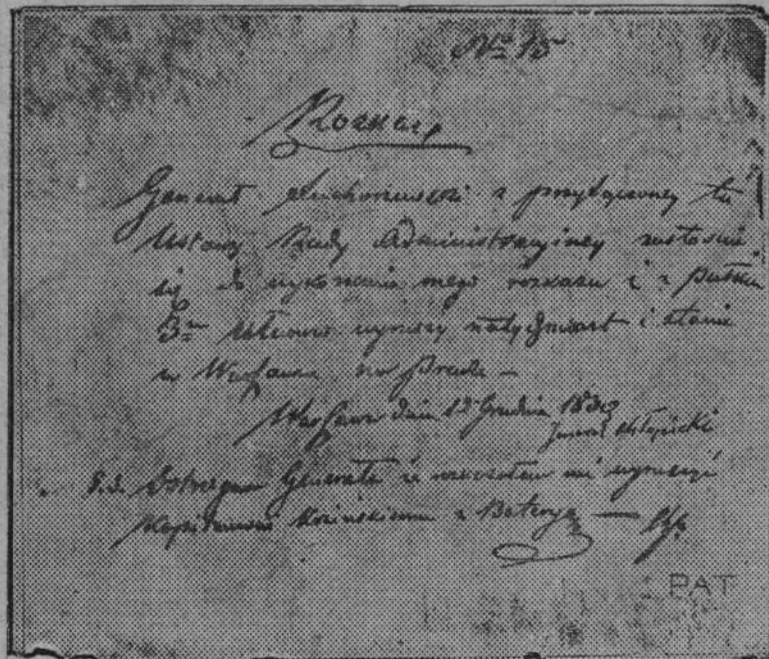 No 15
Rozkaz
Generał Suchorzewski z przyłączoney tu
Ustawy Rady Administracyiney zastosuie
się do wykonania mego rozkazu i z pułkiem
3m Ułanów wyruszy natychmiast i stanie
w Warszawie na Pradze —
Warszawa dnia 12 Grudnia 1830
Jenerał Chłopicki
P.S. Ostrzegam Generała iż rozkazałem mi wyruszyć
Kapitanowi Kozińskiemu z Bateryą —
PAT